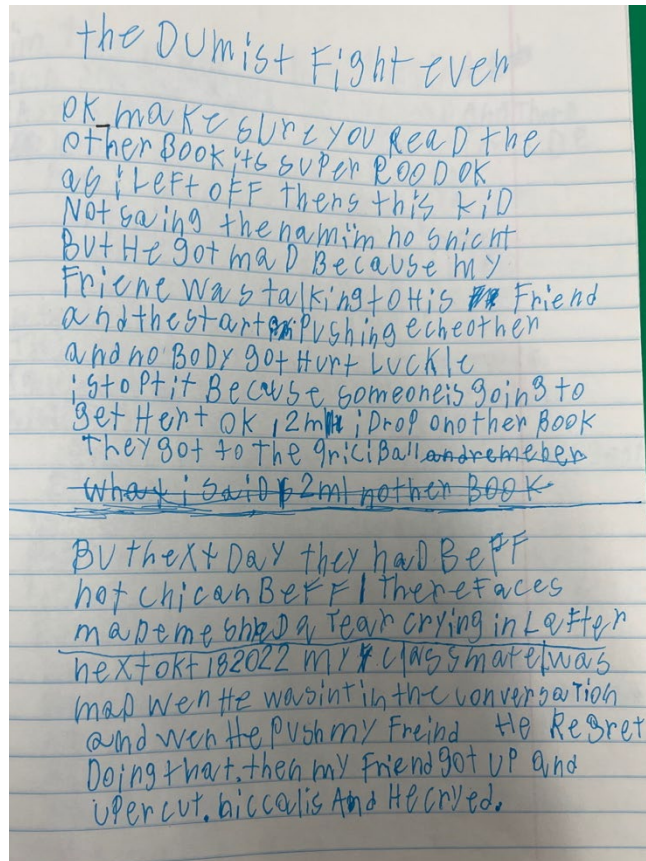 the DUmist Fight ever
OK make sure you ReaD the
other Book its super ROOD OK
as i Left off thers this kiD
Not saing the nam im no snicht
But He got maD Because my
Friene was talking to His Friend
and the start Pushing eche other
and no BoDy got Hurt Luckle
i stopt it Because someone is going to
get Hert ok 12m i Drop onother Book
They got to the griciBall and remeber
what i saiD 12ml nother Book
BU the xt Day they haD BeFF
hot chican BeFF! There Faces
maDe me sheD a Tear crying in LaFter
next okt 182022 my classmate was
maD wen He wasint in the conversaTion
and wen He Push my Freind He Regret
Doing that. then my Friend got up and
uPercut. biccalis And He cryed.